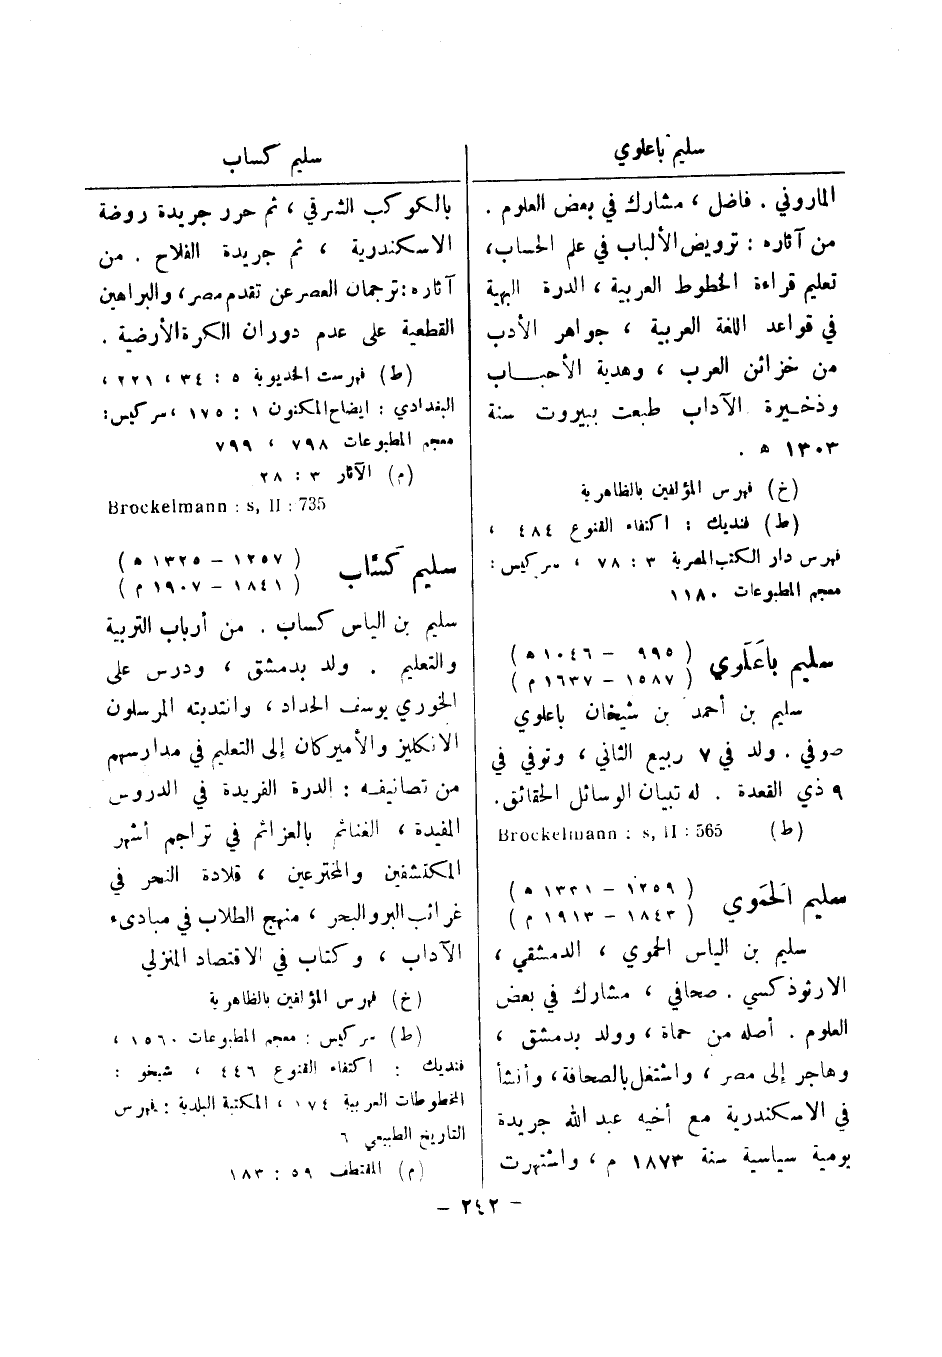 سليم باعلوي
الماروني . فاضل ، مشارك في بعض العلوم .
من آثاره : ترويض الألباب في علم الحساب،
تعليم قراءة الخطوط العربية ، الدرة البهية
في قواعد اللغة العربية ، جواهر الأدب
من خزائن العرب ، وهدية الأحباب
وذخيرة الآداب طبعت ببيروت سنة
١٣٠٣ ه .
(خ) فهرس المؤلفين بالظاهرية
(ط) فنديك : اكتفاء القنوع ٤٨٤ ،
فهرس دار الكتب المصرية ٣ : ٧٨ ، سركيس :
معجم المطبوعات ١١٨٠
سليم باعَلَوي ( ٩٩٥ – ١٠٤٦ ه )
( ١٥٨٧ – ١٦٣٧ م )
سليم بن أحمد بن شيخان باعلوي
صوفي . ولد في ٧ ربيع الثاني ، وتوفي في
٩ ذي القعدة . له تبيان الوسائل الحقائق.
(ط) Brockelmann : s, II : 565
سليم الحَمَوي ( ١٢٥٩ – ١٣٣١ ه )
( ١٨٤٣ – ١٩١٣ م )
سليم بن الياس الحموي ، الدمشقي ،
الارثوذكسي . صحافي ، مشارك في بعض
العلوم . أصله من حماة ، وولد بدمشق ،
وهاجر إلى مصر ، واشتغل بالصحافة، وأنشأ
في الاسكندرية مع أخيه عبد الله جريدة
يومية سياسية سنة ١٨٧٣ م ، واشتهرت
سليم كساب
بالكوكب الشرقي ، ثم حرر جريدة روضة
الاسكندرية ، ثم جريدة الفلاح . من
آثاره : ترجمان العصر عن تقدم مصر، والبراهين
القطعية على عدم دوران الكرة الأرضية .
(ط) فهرست الخديوية ٥ : ٣٤ ، ٢٢١ ،
البغدادي : ايضاح المكنون ١ : ١٧٥ ، سركيس :
معجم المطبوعات ٧٩٨ ، ٧٩٩
(م) الآثار ٣ : ٢٨
Brockelmann : s, II : 735
سليم كَسَّاب ( ١٢٥٧ – ١٣٢٥ ه )
( ١٨٤١ – ١٩٠٧ م )
سليم بن الياس كساب . من أرباب التربية
والتعليم . ولد بدمشق ، ودرس على
الخوري يوسف الحداد ، وانتدبته المرسلون
الانكليز والأميركان إلى التعليم في مدارسهم
من تصانيفه : الدرة الفريدة في الدروس
المفيدة ، الغنائم بالعزائم في تراجم أشهر
المكتشفين والمخترعين ، قلادة النحر في
غرائب البر والبحر ، منهج الطلاب في مبادىء
الآداب ، وكتاب في الاقتصاد المنزلي
(خ) فهرس المؤلفين بالظاهرية
(ط) سركيس : معجم المطبوعات ١٥٦٠ ،
فنديك : اكتفاء القنوع ٤٤٦ ، شيخو :
المخطوطات العربية ١٧٤ ، المكتبة البلدية : فهرس
التاريخ الطبيعي ٦
(م) المقتطف ٥٩ : ١٨٣
– ٢٤٢ –